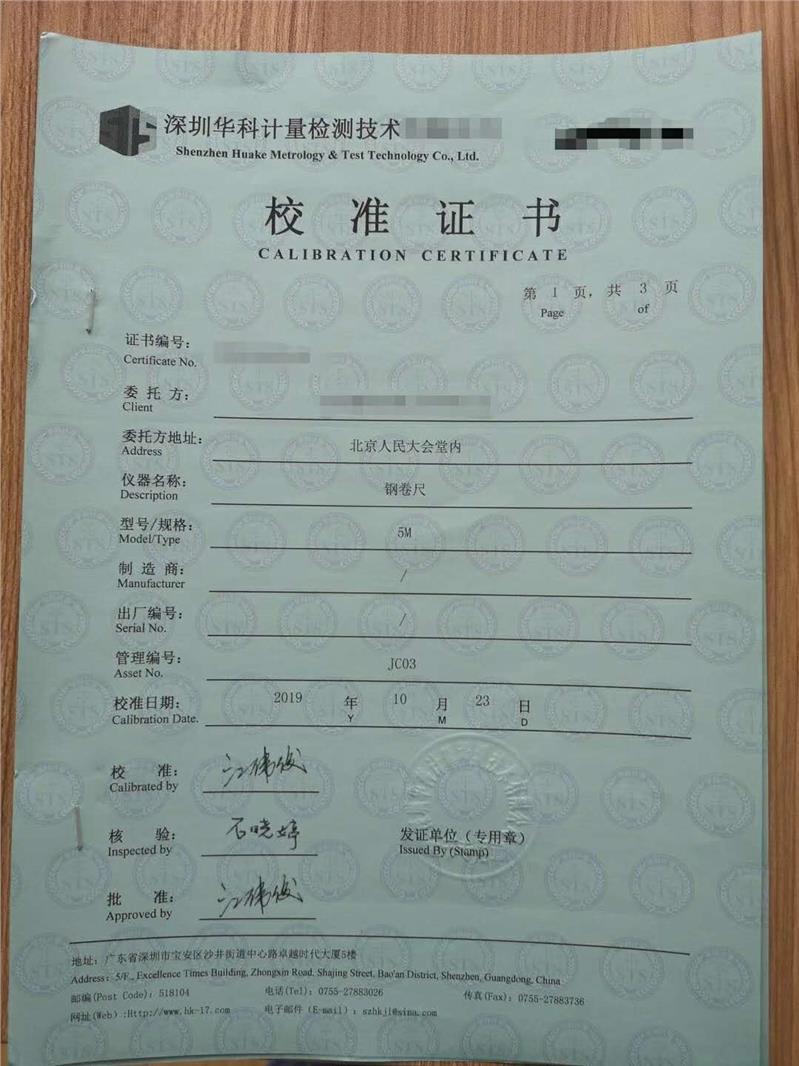 STS
深圳华科计量检测技术
Shenzhen Huake Metrology & Test Technology Co., Ltd.
校准证书
CALIBRATION CERTIFICATE
第 1 页，共 3 页
Page of
证书编号：
Certificate No.
委托方：
Client
委托方地址： 北京人民大会堂内
Address
仪器名称： 钢卷尺
Description
型号/规格： 5M
Model/Type
制造商： /
Manufacturer
出厂编号： /
Serial No.
管理编号： JC03
Asset No.
校准日期： 2019 年 10 月 23 日
Calibration Date. Y M D
校准： 江伟俊
Calibrated by
核验： 石晓婷
Inspected by
发证单位（专用章）
Issued By (Stamp)
批准： 江伟俊
Approved by
地址：广东省深圳市宝安区沙井街道中心路卓越时代大厦5楼
Address：5/F., Excellence Times Building, Zhongxin Road, Shajing Street, Bao'an District, Shenzhen, Guangdong, China
邮编(Post Code)：518104 电话(Tel)：0755-27883026 传真(Fax)：0755-27883736
网址(Web)：Http://www.hk-17.com 电子邮件（E-mail）：szhkjl@sina.com